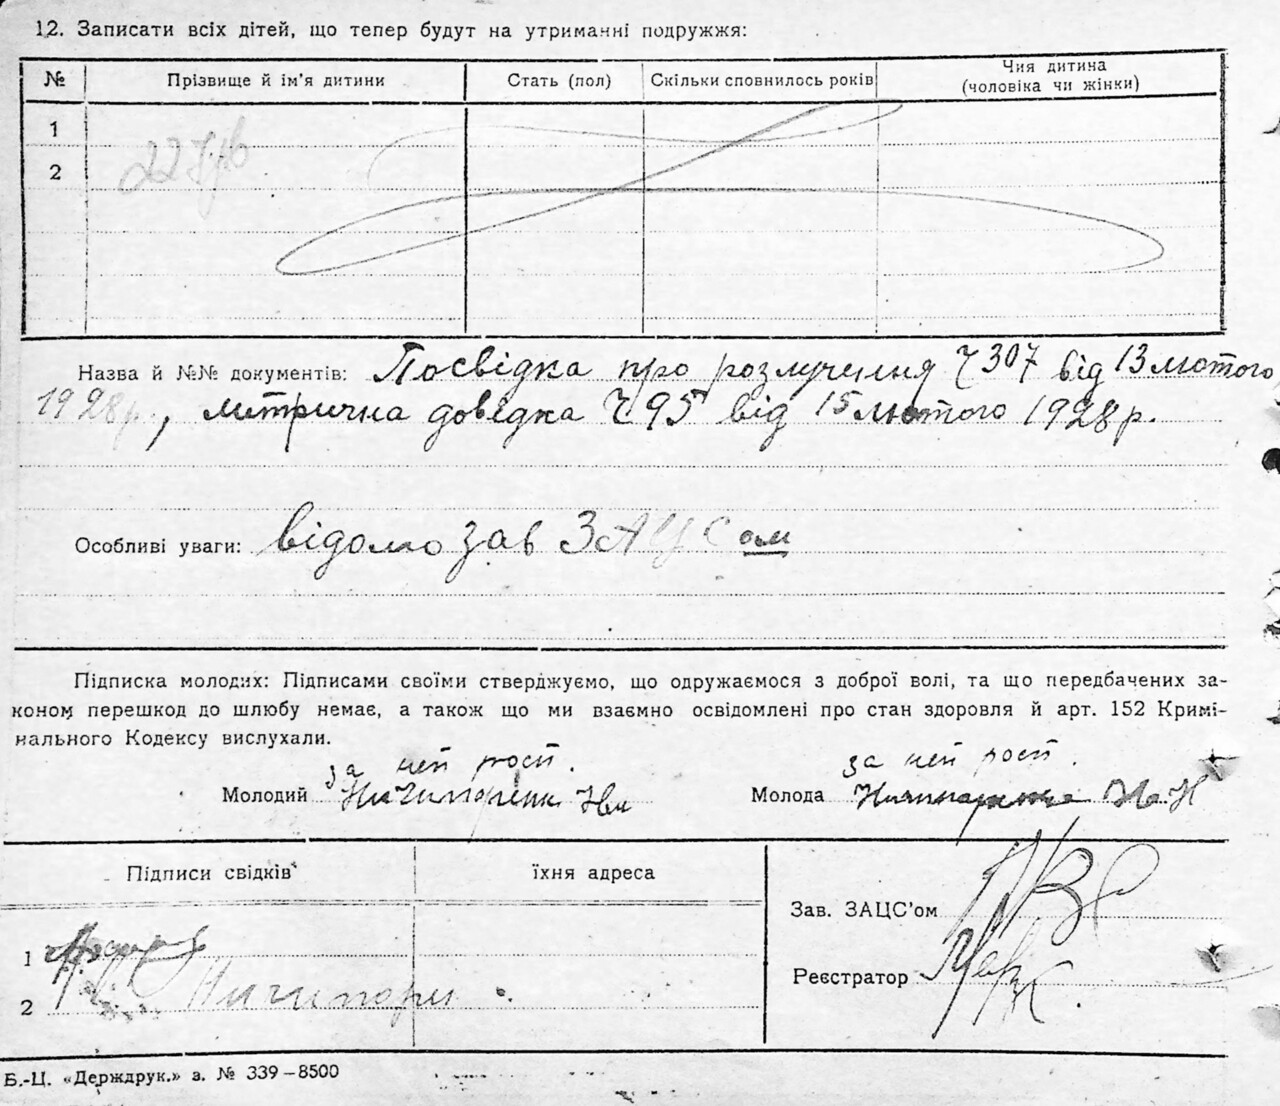 12. Записати всіх дітей, що тепер будут на утриманні подружжя:
№ Прізвище й ім'я дитини Стать (пол) Скільки сповнилось років Чия дитина
(чоловіка чи жінки)
1
2
Назва й №№ документів: Посвідка про розлучення Ч 307 від 13 лютого
1928 р., метрична довідка Ч 95 від 15 лютого 1928 р.
Особливі уваги: відомо зав ЗАЦС ом
Підписка молодих: Підписами своїми стверджуємо, що одружаємося з доброї волі, та що передбачених за-
коном перешкод до шлюбу немає, а також що ми взаємно освідомлені про стан здоровля й арт. 152 Кримі-
нального Кодексу вислухали.
за
за
Молодий Молода
Підписи свідків їхня адреса
Зав. ЗАЦС'ом
1
Реєстратор
2 Ничипори
Б.-Ц. «Держдрук.» з. № 339–8500